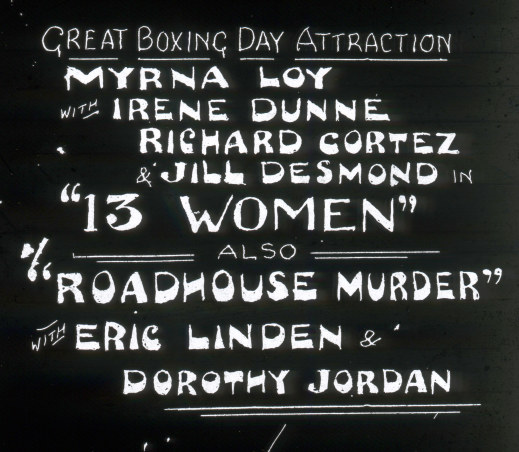 GREAT BOXING DAY ATTRACTION
MYRNA LOY
WITH IRENE DUNNE
RICHARD CORTEZ
& JILL DESMOND IN
"13 WOMEN"
ALSO
"ROADHOUSE MURDER"
WITH ERIC LINDEN &
DOROTHY JORDAN